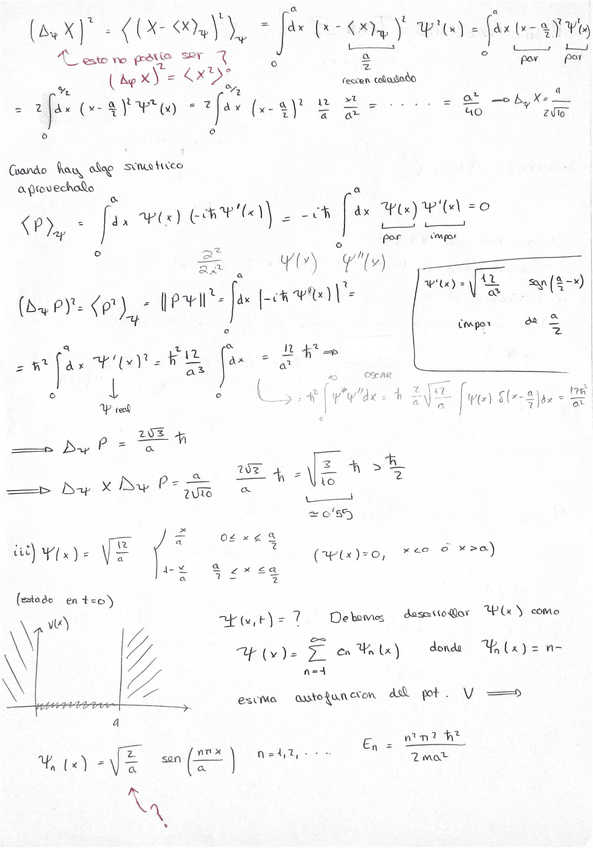 (Δ_ψ X)² = ⟨(X - ⟨X⟩_ψ)²⟩_ψ = ∫₀ᵃ dx (x - ⟨X⟩_ψ)² ψ²(x) = ∫₀ᵃ dx (x - a/2)² ψ²(x)
a/2 par par
esto no podria ser ?
(Δψ X)² = ⟨X²⟩
recien calculado
= 2 ∫₀^{a/2} dx (x - a/2)² ψ²(x) = 2 ∫₀^{a/2} dx (x - a/2)² 12/a x²/a² = ..... = a²/40 → Δ_ψ X = a/2√10
Cuando hay algo simetrico
aprovechalo
⟨P⟩_ψ = ∫₀ᵃ dx ψ(x) (-iħ ψ'(x)) = -iħ ∫₀ᵃ dx ψ(x) ψ'(x) = 0
par impar
2²/2x² ψ(x) ψ''(x)
(Δ_ψ P)² = ⟨P²⟩_ψ = ‖Pψ‖² = ∫₀ᵃ dx |-iħ ψ'(x)|² =
ψ'(x) = √(12/a³) sgn(a/2 - x)
impar de a/2
= ħ² ∫₀ᵃ dx ψ'(x)² = ħ² 12/a³ ∫₀ᵃ dx = 12/a² ħ² ⇒
ψ real
OSCAR
→ = ħ² ∫ ψ* ψ'' dx = ħ 2/a √(12/a) ∫ ψ(x) δ(x - a/2) dx = 12ħ²/a²
⟹ Δ_ψ P = 2√3/a ħ
⟹ Δ_ψ X Δ_ψ P = a/2√10 2√3/a ħ = √(3/10) ħ > ħ/2
≃0'55
iii) ψ(x) = √(12/a) { x/a 0 ≤ x ≤ a/2
1 - x/a a/2 ≤ x ≤ a/2
(ψ(x) = 0, x<0 ó x>a)
(estado en t=0)
V(x)
a
Ψ(x,t) = ? Debemos desarrollar ψ(x) como
ψ(x) = ∑_{n=1}^∞ cn ψn(x) donde ψn(x) = n-
esima autofuncion del pot. V ⟹
ψn(x) = √(2/a) sen(nπx/a) n=1,2,.... En = n²π²ħ²/2ma²
?